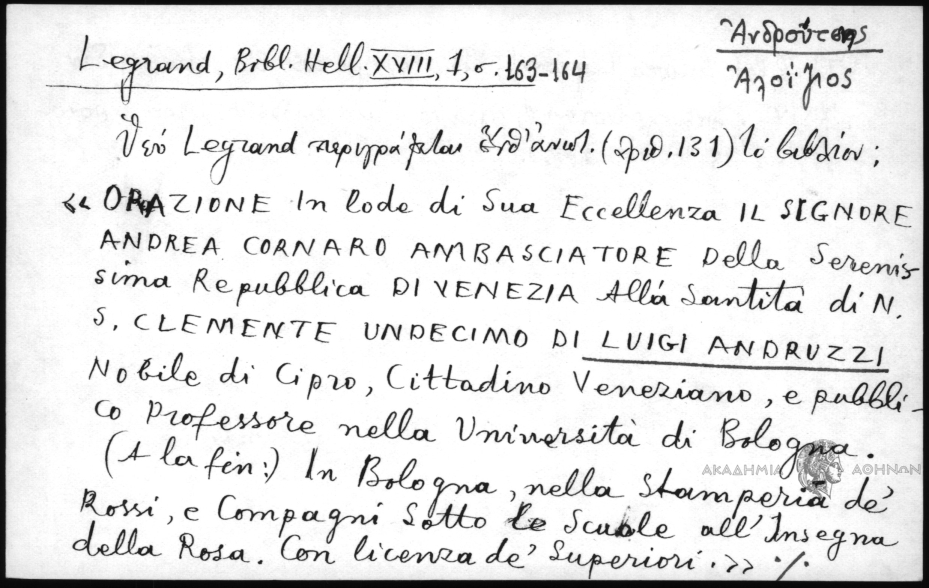 Ἀνδρούτσης
Ἀλοΐσιος
Legrand, Bibl. Hell. XVIII, 1, σ. 163-164
Ὑπό Legrand περιγράφεται ἐξ ἀντ. (ἀριθ. 131) τό βιβλίον;
« ORAZIONE In lode di Sua Eccellenza IL SIGNORE
ANDREA CORNARO AMBASCIATORE Della Serenis-
sima Repubblica DI VENEZIA Allá Santità di N.
S. CLEMENTE UNDECIMO DI LUIGI ANDRUZZI
Nobile di Cipro, Cittadino Veneziano, e pubbli-
co Professore nella Università di Bologna.
(A la fin:) In Bologna, nella Stamperia de'
Rossi, e Compagni Sotto le Scuole all'Insegna
della Rosa. Con licenza de' Superiori. » ./.
ΑΚΑΔΗΜΙΑ ΑΘΗΝΩΝ